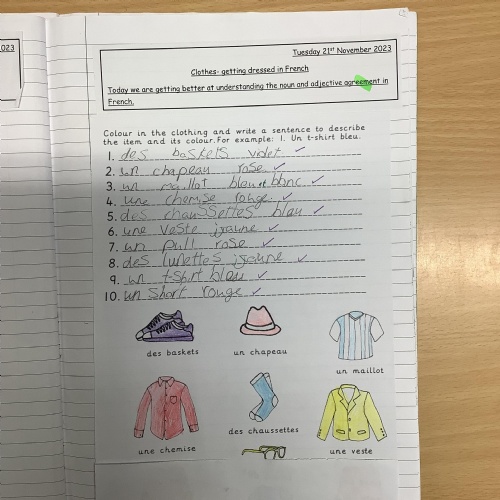 023
Tuesday 21st November 2023
Clothes- getting dressed in French
Today we are getting better at understanding the noun and adjective agreement in
French.
Colour in the clothing and write a sentence to describe
the item and its colour. For example: 1. Un t-shirt bleu.
1. des baskets violet
2. un chapeau rose
3. un maillot bleu et blanc
4. une chemise rouge.
5. des chaussettes bleu
6. une veste jaune
7. un pull rose
8. des lunettes jaune
9. un t-shirt bleu
10. un short rouge
des baskets
un chapeau
un maillot
une chemise
des chaussettes
une veste